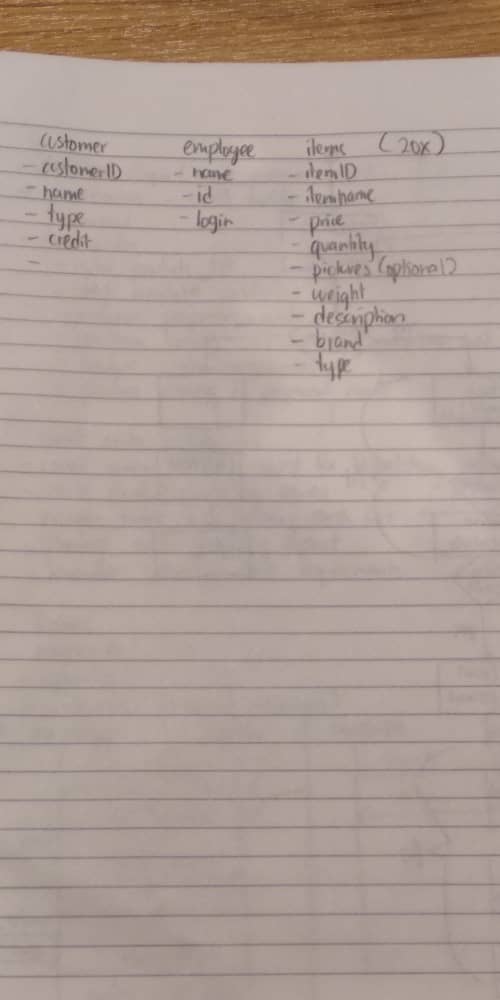 customer
- customerID
- name
- type
- credit
-
employee
- name
- id
- login
items (20x)
- itemID
- itemname
- price
- quantity
- pictures (optional)
- weight
- description
- brand
- type